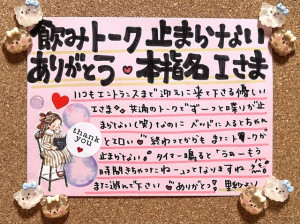 飲みトーク止まらない
ありがとう♥本指名Iさま
いつもエントランスまで迎えに来て下さる優しい
Iさま 共通のトークでずーっと喋りが止
まらない(笑)なのにベッドに入るとちゃん
とエロい♥終わってからもまたトークが
止まらない!タイマー鳴ると「うわーもう
時間きちゃったねーってなりますね
また遊んで下さい♥ありがとう
thank
you